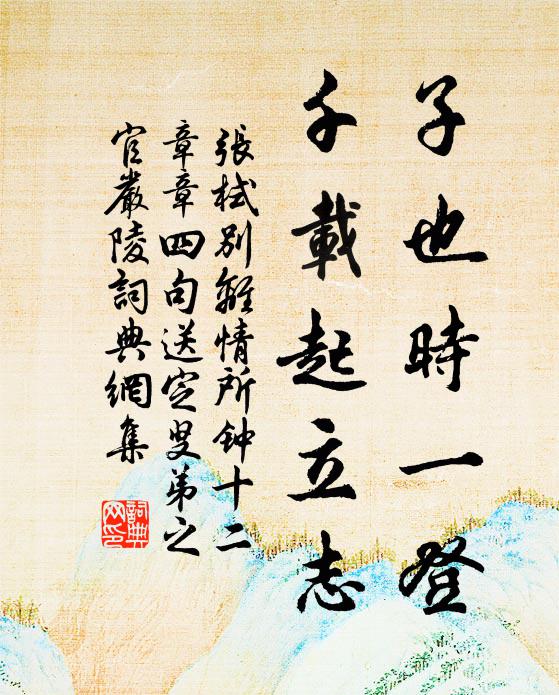 子也時一登
千載起立志
張栻別離情所钟十二
章章四句送定叟弟之
官嚴陵詞典網集
詞典
网印